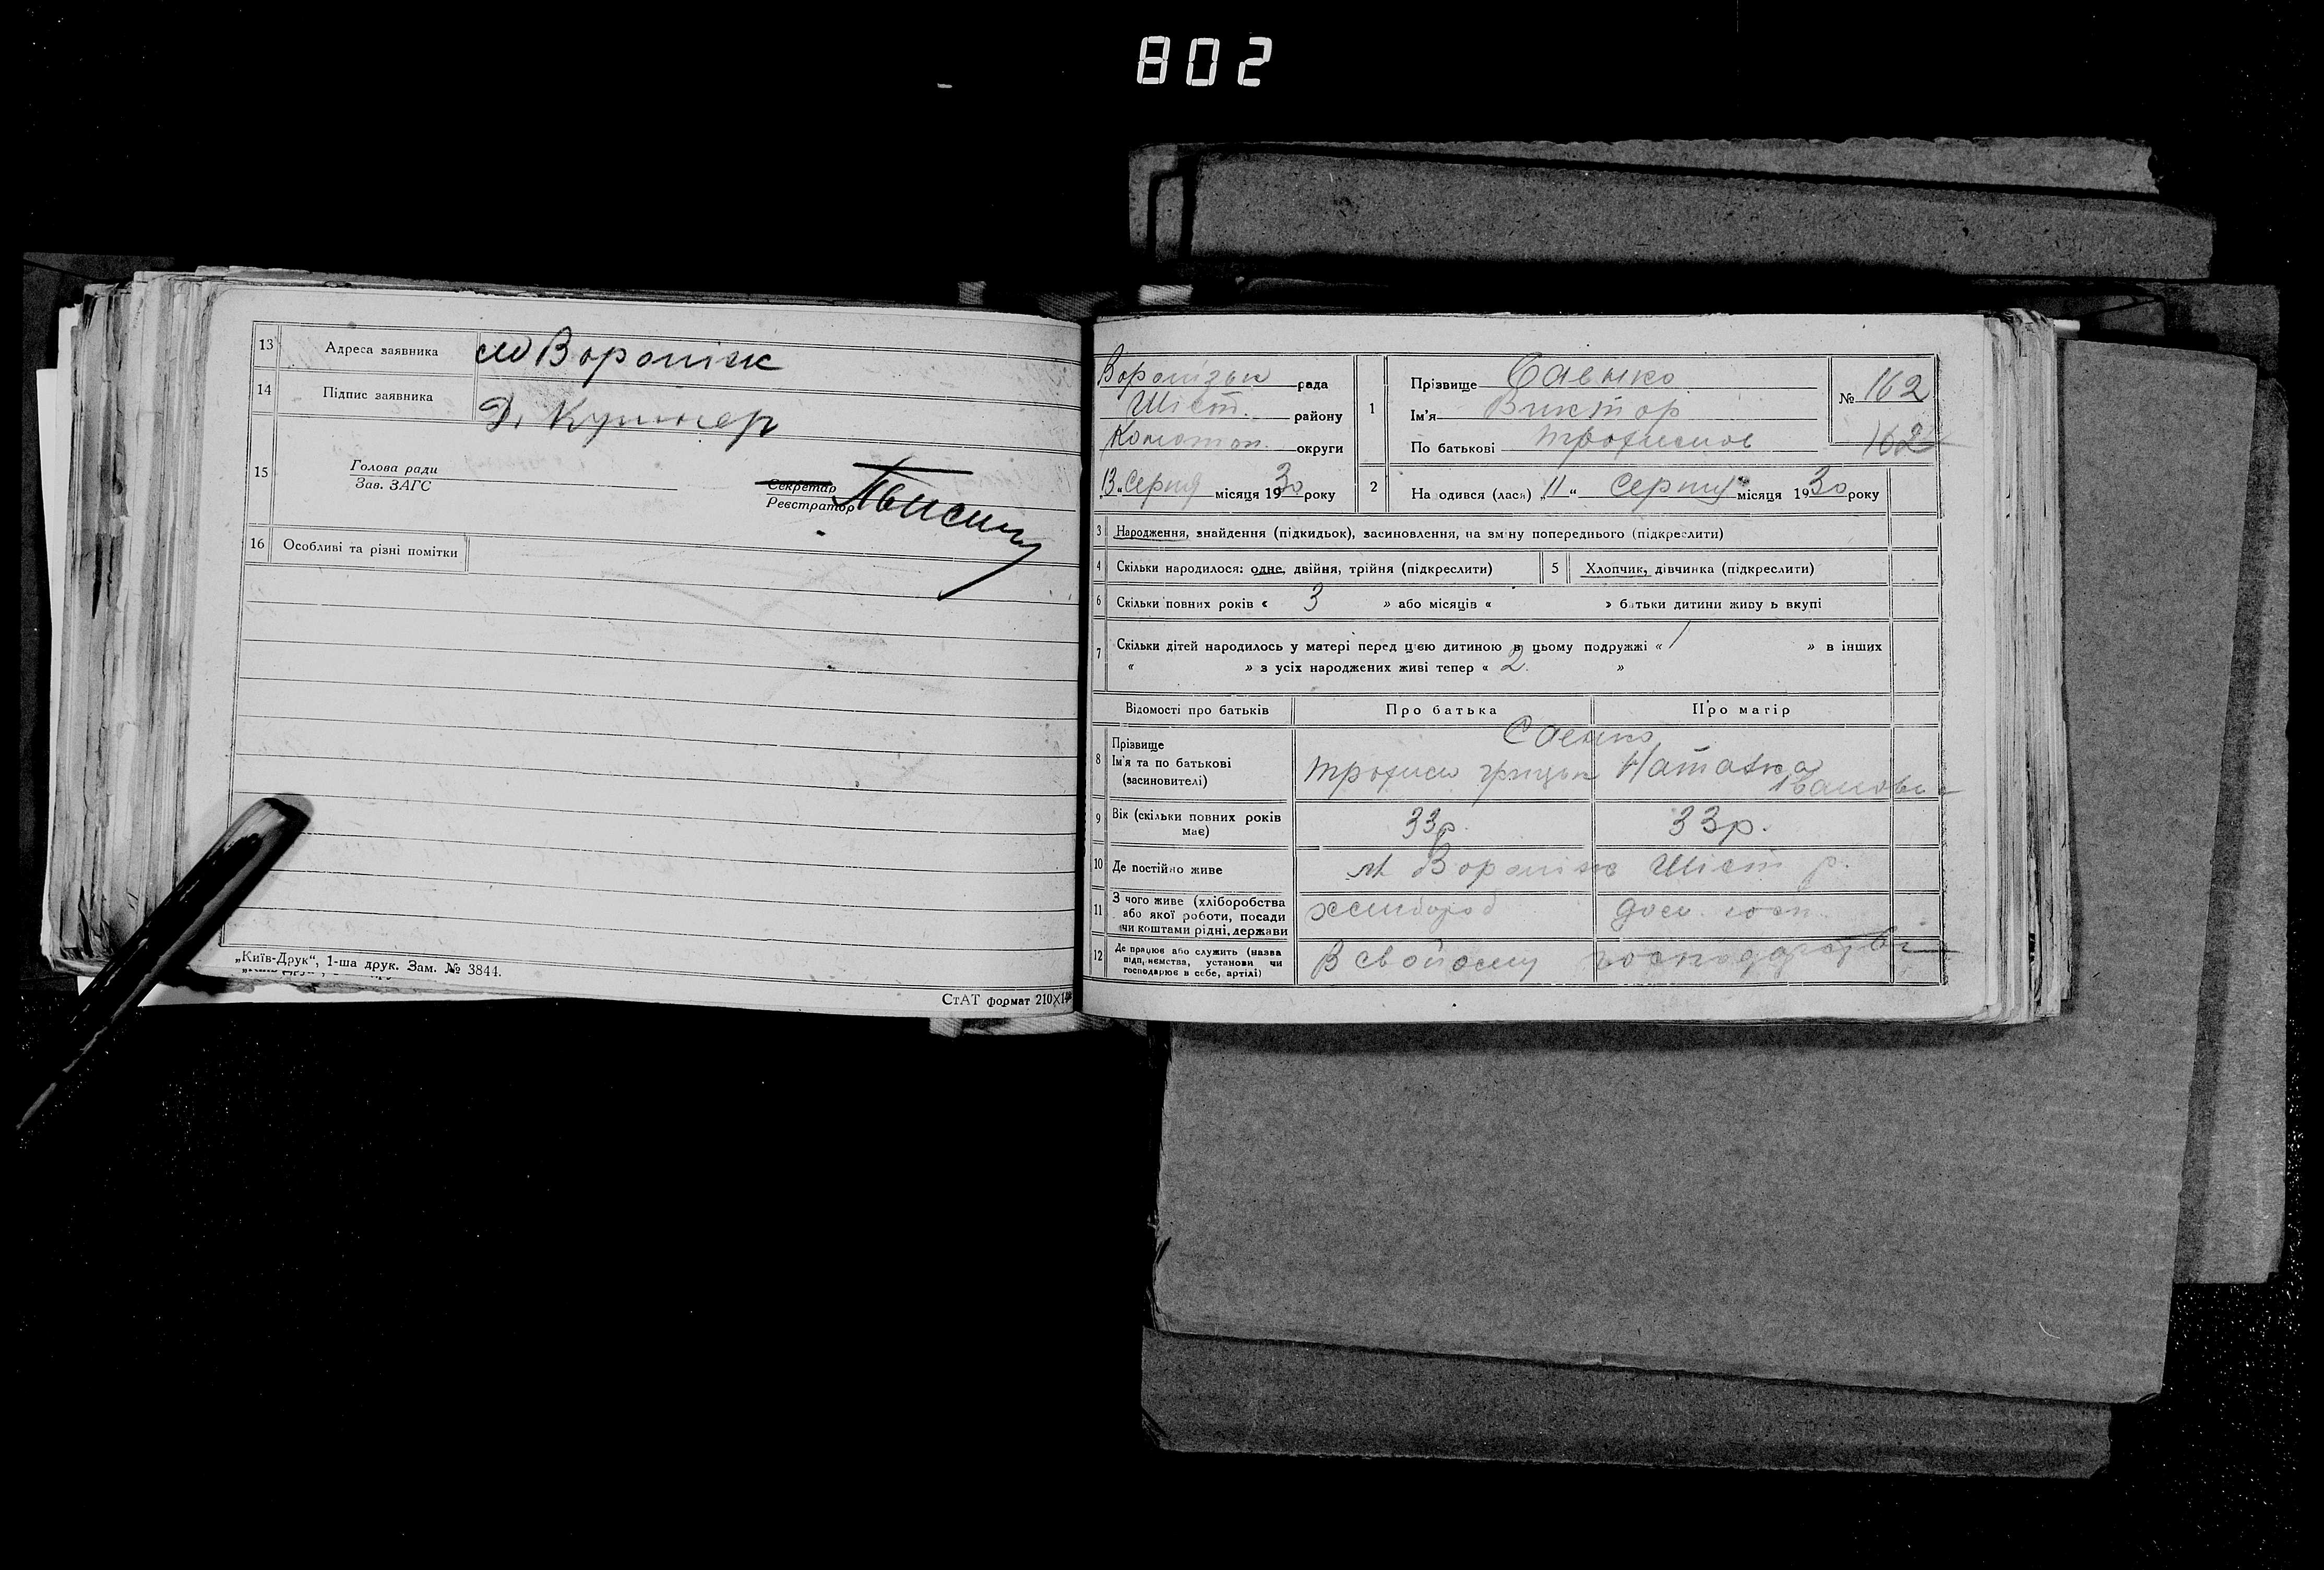 802
13 Адреса заявника м Вороніж
14 Підпис заявника
15 Голова ради
Зав. ЗАГС
Секретар
Реєстратор
16 Особливі та різні помітки
„Київ-Друк“, 1-ша друк. Зам. № 3844.
СтАТ формат 210×1
Воронізька рада
Шіст. району
Конотоп. округи
13 „ Серпня місяця 1930 року
1 Прізвище Саенко
Ім'я Виктор
По батькові Трофимов
№ 162
162
2 На одився (лася) 11 „ Серпня місяця 1930 року
3 Народження, знайдення (підкидьок), засиновлення, на зміну попереднього (підкреслити)
4 Скільки народилося: одне, двійня, трійня (підкреслити)
5 Хлопчик, дівчинка (підкреслити)
6 Скільки повних років « 3 » або місяців « » батьки дитини живу ь вкупі
7 Скільки дітей народилось у матері перед цією дитиною в цьому подружжі « 1 » в інших
« » з усіх народжених живі тепер « 2. »
Відомості про батьків Про батька Про матір
8 Прізвище
Ім'я та по батькові
(засиновителі)
Саенко
Трофим Грицьк Наталка
Івановна
9 Вік (скільки повних років
має)
33р. 33р.
10 Де постійно живе м Вороніж Шіст р.
11 З чого живе (хліборобства
або якої роботи, посади
чи коштами рідні, держави
хлибороб дом. госп.
12 Де працює або служить (назва
підп,иємства, установи чи
господарює в себе, артілі)
В свойому господарстві